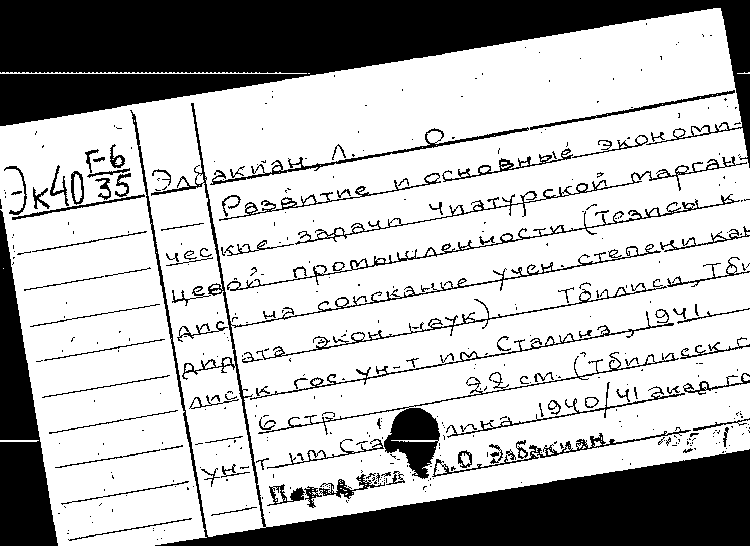 Эк40 F-6
35
Элбакиан, Л. О.
Развитие и основные экономи-
ческие задачи Чиатурской марган-
цевой промышленности (тезисы к
дисс на соискание учен. степени кан-
дидата экон. наук). Тбилиси, Тби-
лисск. гос. ун-т им. Сталина, 1941.
6 стр. 22 см. (Тбилисск. г
ун-т им. Ста лина 1940/41 акад го
Перед загл Л.О. Элбакиан.